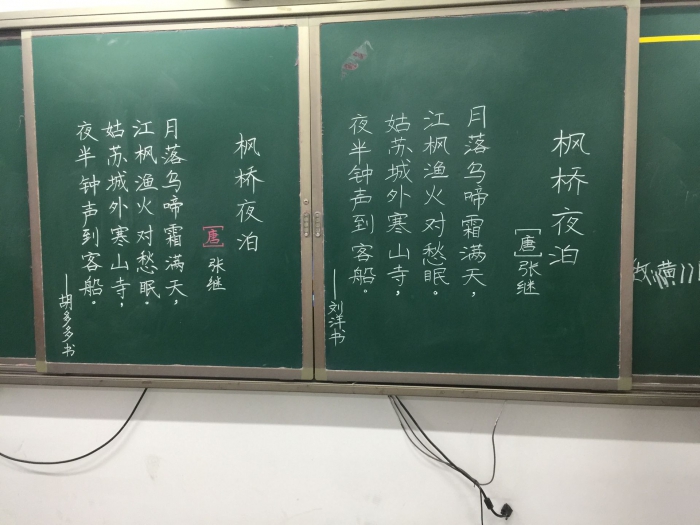 枫桥夜泊
[唐]张继
月落乌啼霜满天，
江枫渔火对愁眠。
姑苏城外寒山寺，
夜半钟声到客船。
——胡多多书
枫桥夜泊
[唐]张继
月落乌啼霜满天，
江枫渔火对愁眠。
姑苏城外寒山寺，
夜半钟声到客船。
——刘洋书